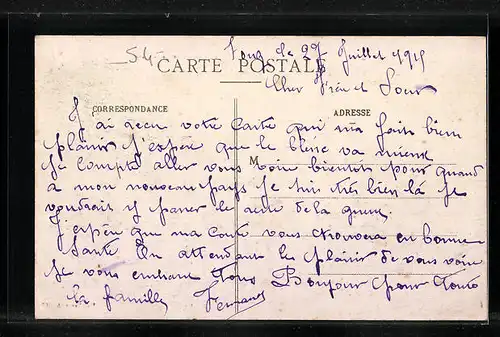 54
CARTE POSTALE
le 29 Juillet 1915
Cher Frère et Soeur
CORRESPONDANCE
ADRESSE
J'ai recu votre Carte qui m'a fait bien
plaisir J'espère que le va mieux
M
Je compte aller vous voir bientôt pour quand
a mon nouveau pays Je suis très bien là Je
voudrait y passer le reste de la guerre
J'espère que ma carte vous trouvera en bonne
Santé En attendant le plaisir de vous voir
Je vous embrasse tous Bonjour pour toute
la famille Fernand